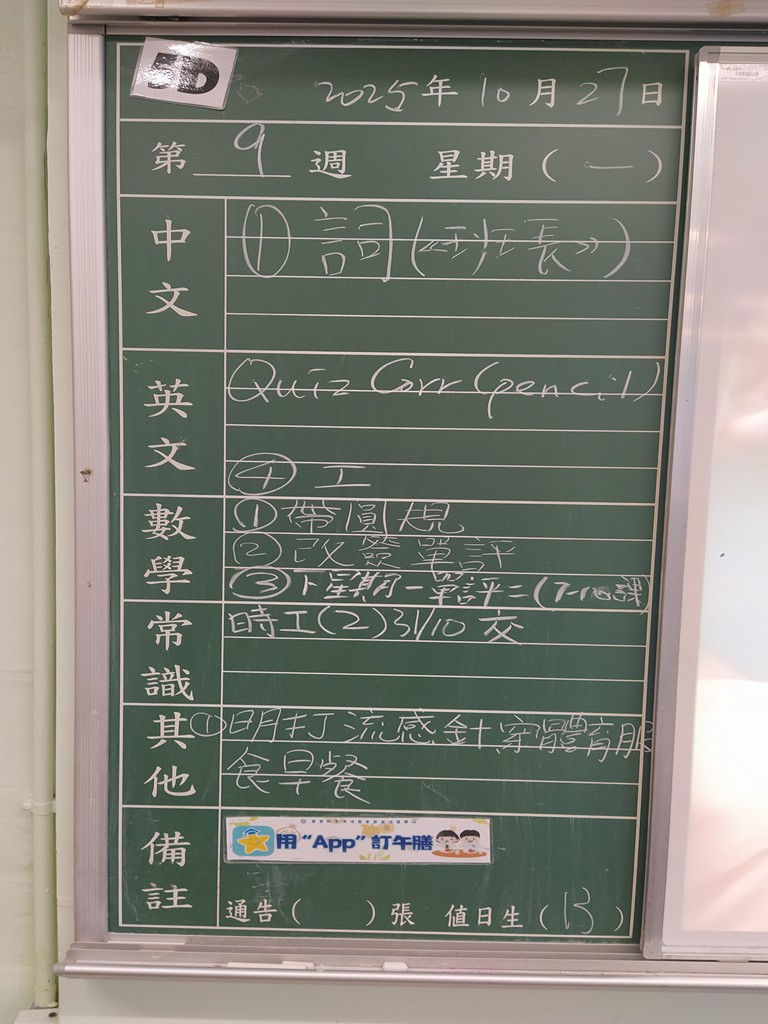 5D
2025年10月27日
第9週 星期(一)
中文
① 詞(《班長》)
英文
Quiz Corr (pencil)
④ 工
數學
① 帶圓規
② 改簽單評
③ 下星期一單評二(7-10課)
常識
時工(2)31/10 交
其他
① 明打流感針穿體育服
食早餐
備註
用“App”訂午膳
通告( )張 值日生(13)